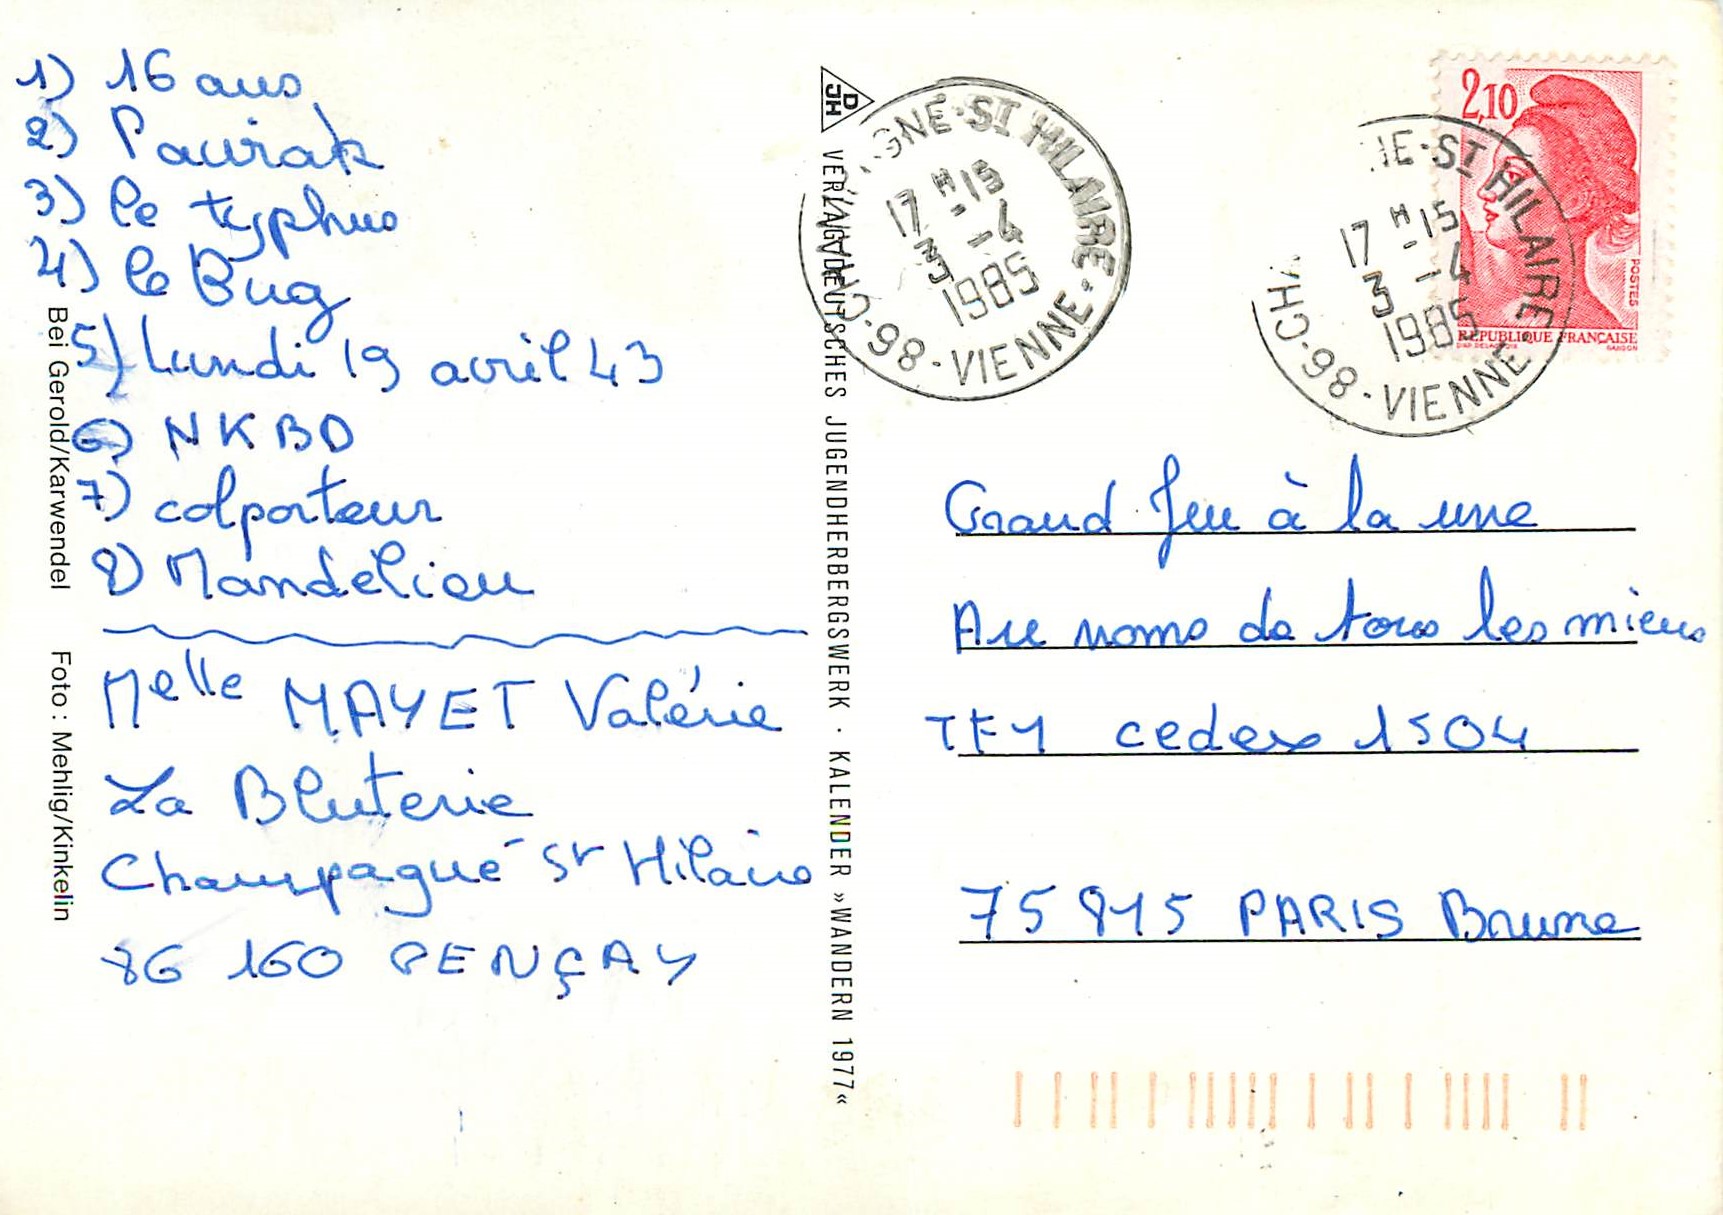 1) 16 ans
2) Pawiak
3) le typhus
4) le Bug
5) Lundi 19 avril 43
6) NKBD
7) colporteur
8) Mandeliou
Melle MAYET Valérie
La Bluterie
Champagné St Hilaire
86 160 GENÇAY
Bei Gerold/Karwendel Foto: Mehlig/Kinkelin
DJH
VERLAG DEUTSCHES JUGENDHERBERGSWERK · KALENDER »WANDERN 1977«
GNÉ-ST HILAIRE
17 H 15
3 -4
1985
86 - VIENNE
2,10
POSTES
REPUBLIQUE FRANÇAISE
GANDON
NE-ST HILAIRE
17 H 15
3 -4
1985
86-VIENNE
Grand Jeu à la une
Au noms de tous les miens
TF1 cedex 1504
75 915 PARIS Brune